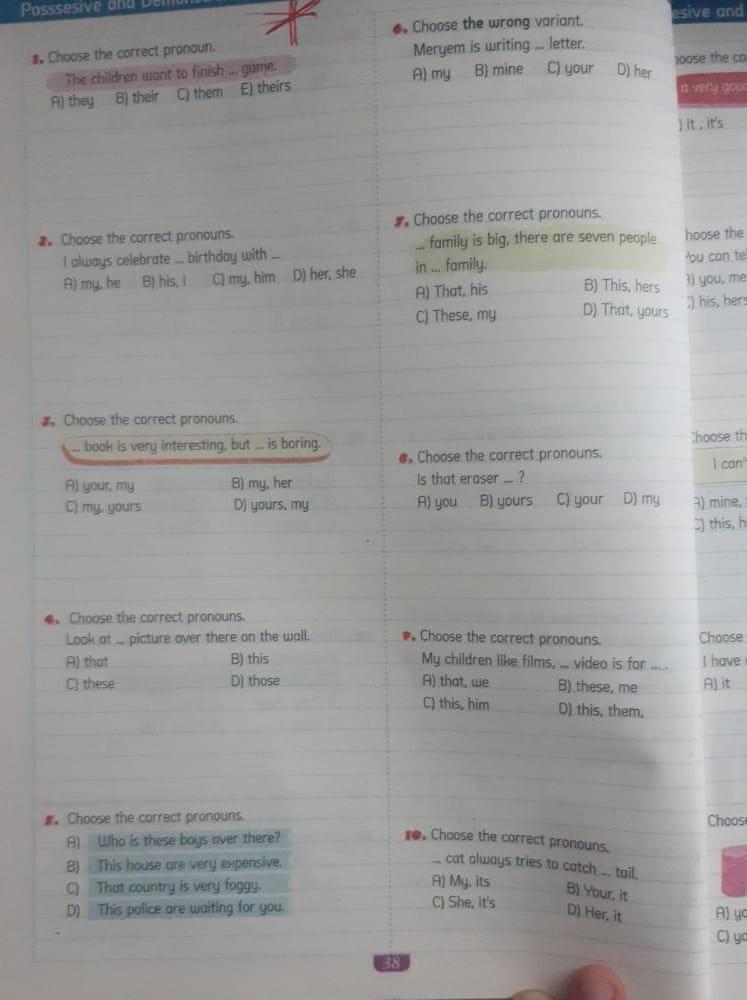 Posssesive and
1. Choose the correct pronoun.
The children want to finish ... game.
A) they B) their C) them E) theirs
2. Choose the correct pronouns.
I always celebrate ... birthday with ...
A) my, he B) his, I C) my, him D) her, she
3. Choose the correct pronouns.
... book is very interesting, but ... is boring.
A) your, my B) my, her
C) my, yours D) yours, my
4. Choose the correct pronouns.
Look at ... picture over there on the wall.
A) that B) this
C) these D) those
5. Choose the correct pronouns.
A) Who is these boys over there?
B) This house are very expensive.
C) That country is very foggy.
D) This police are waiting for you.
6. Choose the wrong variant.
Meryem is writing ... letter.
A) my B) mine C) your D) her
7. Choose the correct pronouns.
... family is big, there are seven people
in ... family.
A) That, his B) This, hers
C) These, my D) That, yours
8. Choose the correct pronouns.
Is that eraser ... ?
A) you B) yours C) your D) my
9. Choose the correct pronouns.
My children like films, ... video is for ... .
A) that, we B) these, me
C) this, him D) this, them,
10. Choose the correct pronouns.
... cat always tries to catch ... tail.
A) My, its B) Your, it
C) She, it's D) Her, it
38
esive and
oose the co
a very good
) It , it's
hoose the
You can te
A) you, me
C) his, hers
Choose th
I can'
A) mine,
C) this, h
Choose
I have
A) it
Choose
A) yo
C) yo